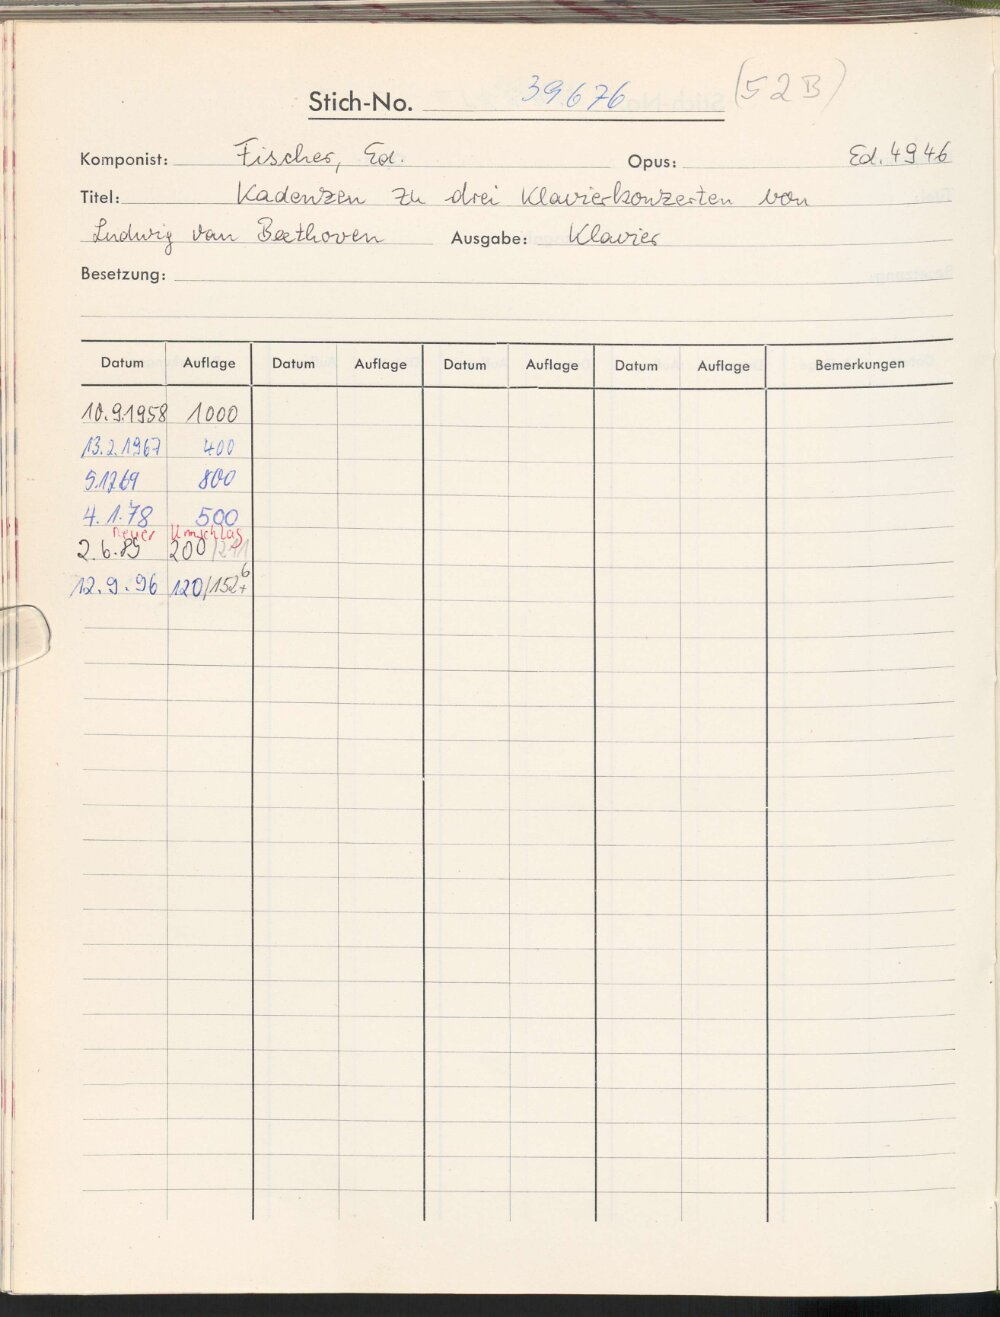 Stich-No. 39676 (52B)
Komponist: Fischer, Ed. Opus: Ed. 4946
Titel: Kadenzen zu drei Klavierkonzerten von
Ludwig van Beethoven Ausgabe: Klavier
Besetzung:
Datum Auflage Datum Auflage Datum Auflage Datum Auflage Bemerkungen
10.9.1958 1000
13.2.1967 400
800
4.1.78 500
neuer Umschlag
2.6.89 200/211
12.9.96 120/152+6